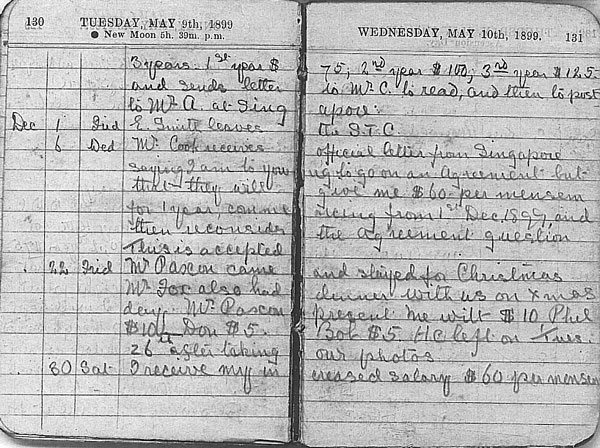 130 TUESDAY, MAY 9th, 1899
● New Moon 5h. 39m. p.m.
3 years. 1st year $
and sends letter
to Mr A. at Sing
Dec 1 Frid E. leaves
6 Wed Mr Cook receives
saying I am to you
that they will
for 1 year, comme
then reconsider
This is accepted
. 22 Frid Mr Pascoe came
Mr Fox also had
day. Mr Pascoe
$10 Don $5.
26th after taking
30 Sat I receive my in
WEDNESDAY, MAY 10th, 1899. 131
75; 2nd year $100; 3rd year $125
to Mr C. to read, and then to post
apore.
the S.T.C.
official letter from Singapore
ng to go on an Agreement but
give me $60 per mensem
ncing from 1st Dec. 1899, and
the agreement question
and stayed for Christmas
dinner with us on Xmas
present me with $10 Phil
Bob $5. He left on Tues.
our photos
creased salary $60 per mensem